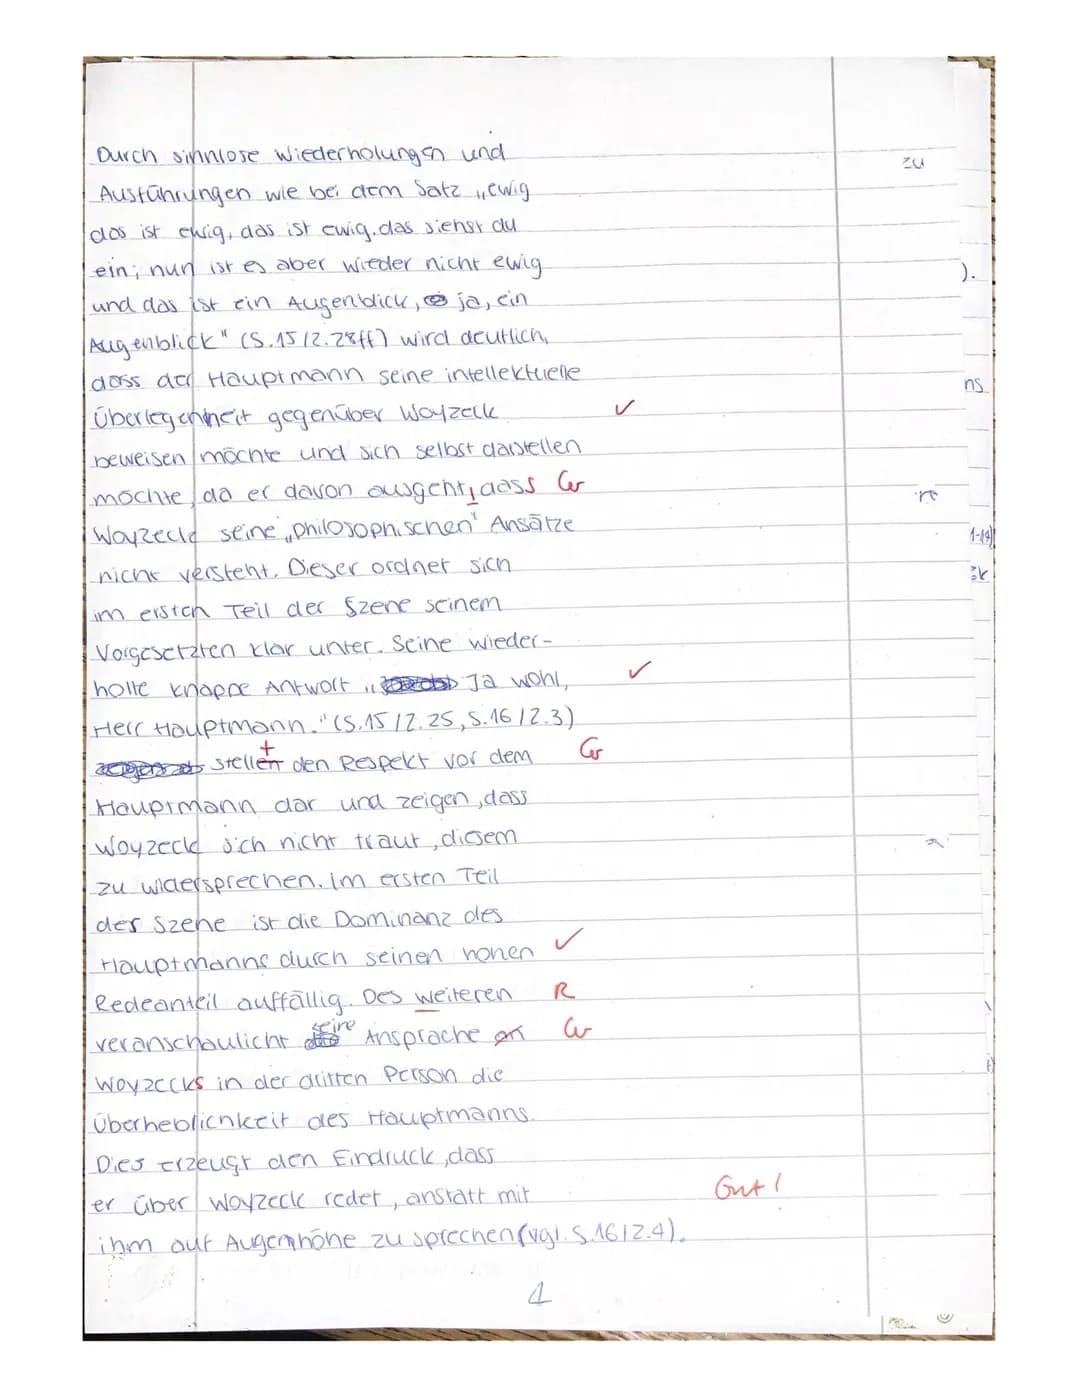 Durch sinnlose Wiederholungen und
zu
Ausführungen wie bei dem Satz „ewig
das ist ewig, das ist ewig, das siehst du
ein; nun ist es aber wieder nicht ewig
).
und das ist ein Augenblick, ja, ein
Augenblick" (S.15/Z.28ff) wird deutlich,
dass der Hauptmann seine intellektuelle
ns
Überlegenheit gegenüber Woyzeck ✓
beweisen möchte und sich selbst darstellen
möchte, da er davon ausgeht, dass Gr
Woyzeck seine „philosophischen" Ansätze
nicht versteht. Dieser ordnet sich
im ersten Teil der Szene seinem
Vorgesetzten klar unter. Seine wieder-
holte knappe Antwort „Ja wohl, ✓
Herr Hauptmann." (S.15/Z.25, S.16/Z.3)
t
stellen den Respekt vor dem Gr
Hauptmann dar und zeigen, dass
Woyzeck sich nicht traut, diesem
zu widersprechen. Im ersten Teil
der Szene ist die Dominanz des
Hauptmanns durch seinen hohen ✓
Redeanteil auffällig. Des weiteren R
veranschaulicht seine Ansprache an Gr
Woyzecks in der dritten Person die
Überheblichkeit des Hauptmanns.
Dies erzeugt den Eindruck, dass
er über Woyzeck redet, anstatt mit Gut!
ihm auf Augenhöhe zu sprechen (vgl. S.16/Z.4).
1